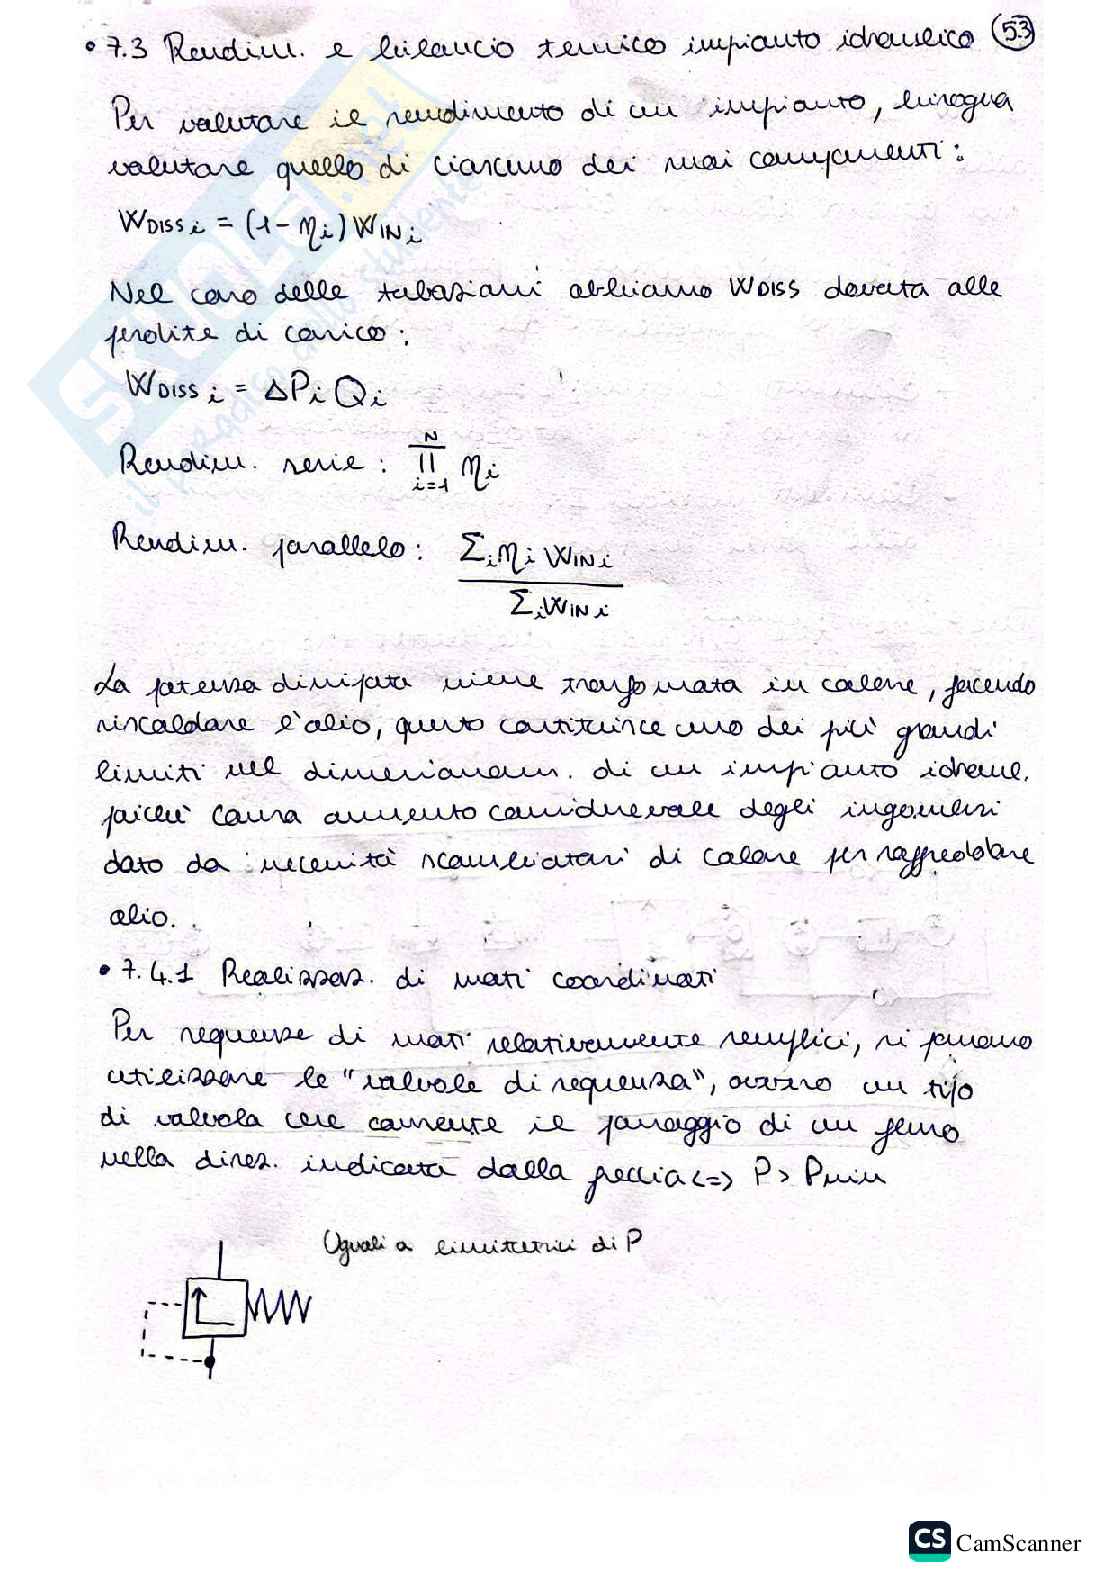 • 7.3 Rendim. e bilancio termico impianto idraulico 53
Per valutare il rendimento di un impianto, bisogna
valutare quello di ciascuno dei suoi componenti:
WDISS i = (1 - ηi) WIN i
Nel caso delle tubazioni abbiamo WDISS dovuta alle
perdite di carico:
WDISS i = ΔPi Qi
Rendim. serie: ∏ i=1 N ηi
Rendim. parallelo: Σi ηi WIN i
Σi WIN i
La potenza dissipata viene trasformata in calore, facendo
riscaldare l'olio, questo costituisce uno dei più grandi
limiti nel dimensionam. di un impianto idraul.
poiché causa aumento considerevole degli ingombri
dato da necessità scambiatori di calore per raffreddare
olio.
• 7.4.1 Realizzaz. di moti coordinati
Per sequenze di moti relativamente semplici, si possono
utilizzare le "valvole di sequenza", ovvero un tipo
di valvola che consente il passaggio di un flusso
nella direz. indicata dalla freccia <=> P > Pmin
Uguali a limitatrici di P
SKUOLA.net
il paradiso dello studente
CS CamScanner